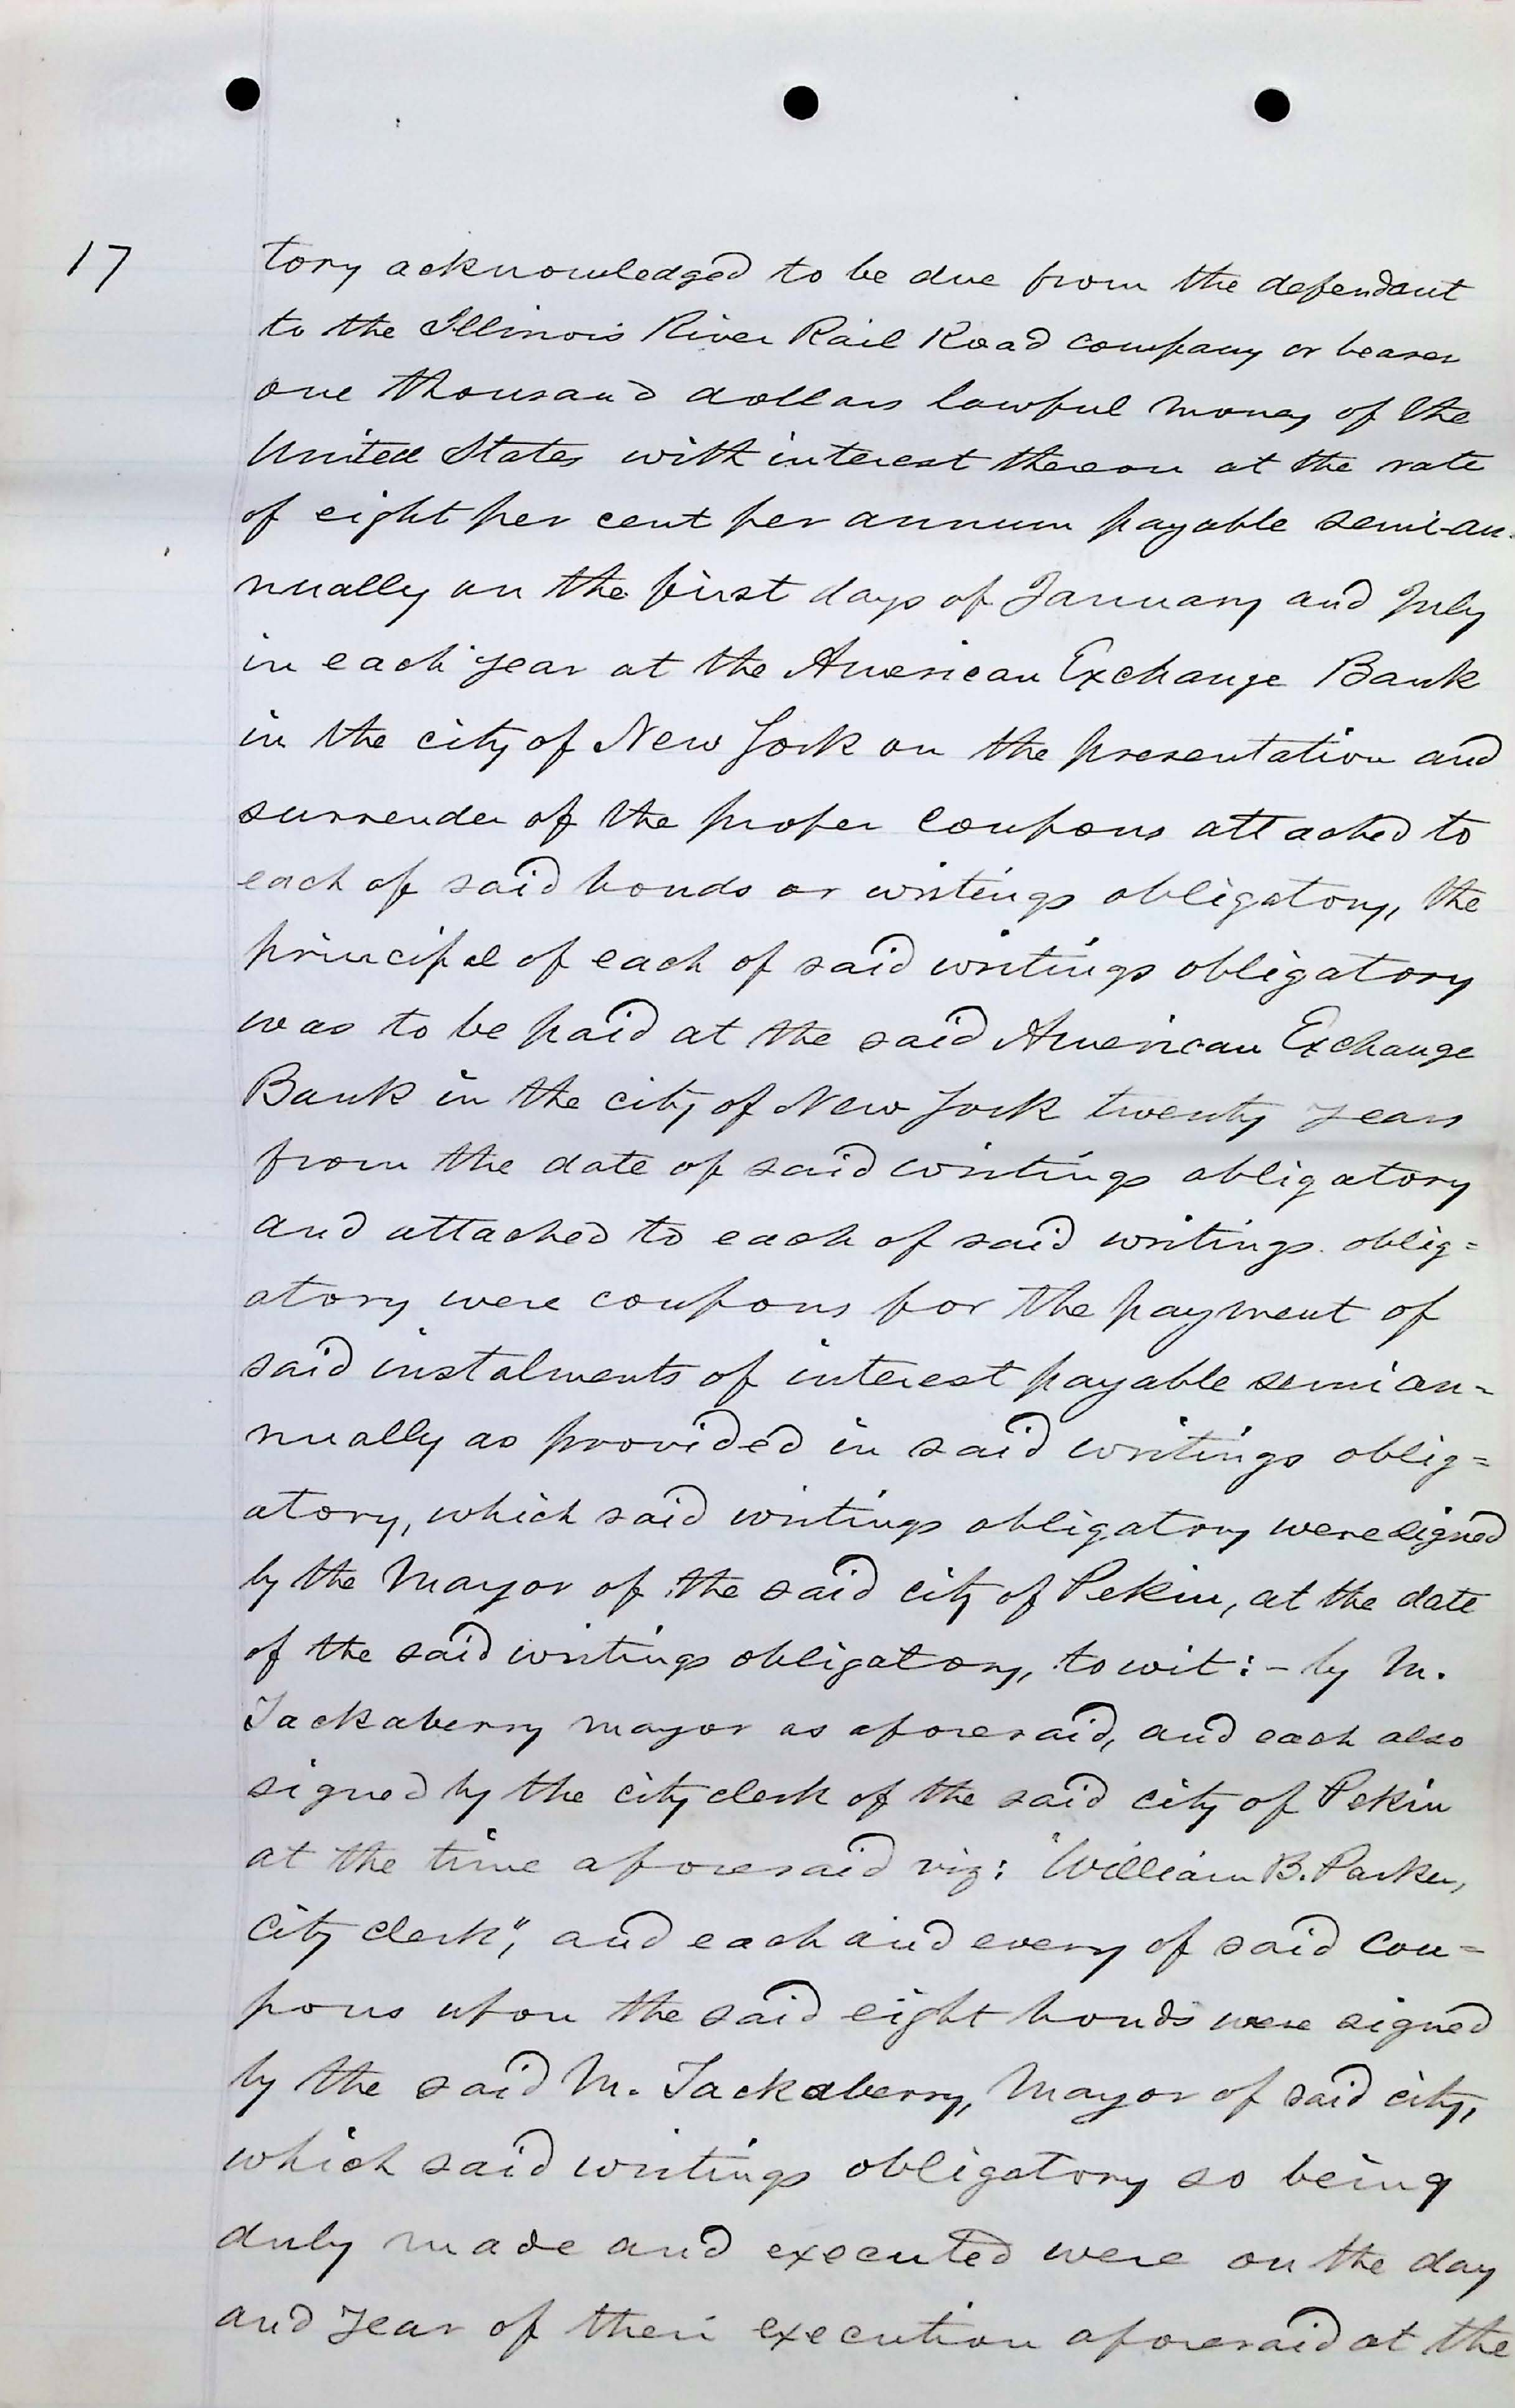 17
tory acknowledged to be due from the defendant
to the Illinois River Rail Road company or bearer
one thousand dollars lawful money of the
United States with interest thereon at the rate
of eight per cent per annum payable semi-an-
nually on the first days of January and July
in each year at the American Exchange Bank
in the city of New York on the presentation and
surrender of the proper coupons attached to
each of said bonds or writings obligatory, the
principal of each of said writings obligatory
was to be paid at the said American Exchange
Bank in the city of New York twenty years
from the date of said writings obligatory
and attached to each of said writings oblig=
atory were coupons for the payment of
said instalments of interest payable semi an=
nually as provided in said writings oblig=
atory, which said writings obligatory were signed
by the Mayor of the said city of Pekin, at the date
of the said writings obligatory, to wit:- by M.
Tackaberry mayor as aforesaid, and each also
signed by the city clerk of the said city of Pekin
at the time aforesaid viz: "William B. Parker,
City clerk", and each and every of said cou=
pons upon the said eight bonds were signed
by the said M. Tackaberry, Mayor of said city,
which said writings obligatory so being
duly made and executed were on the day
and year of their execution aforesaid at the